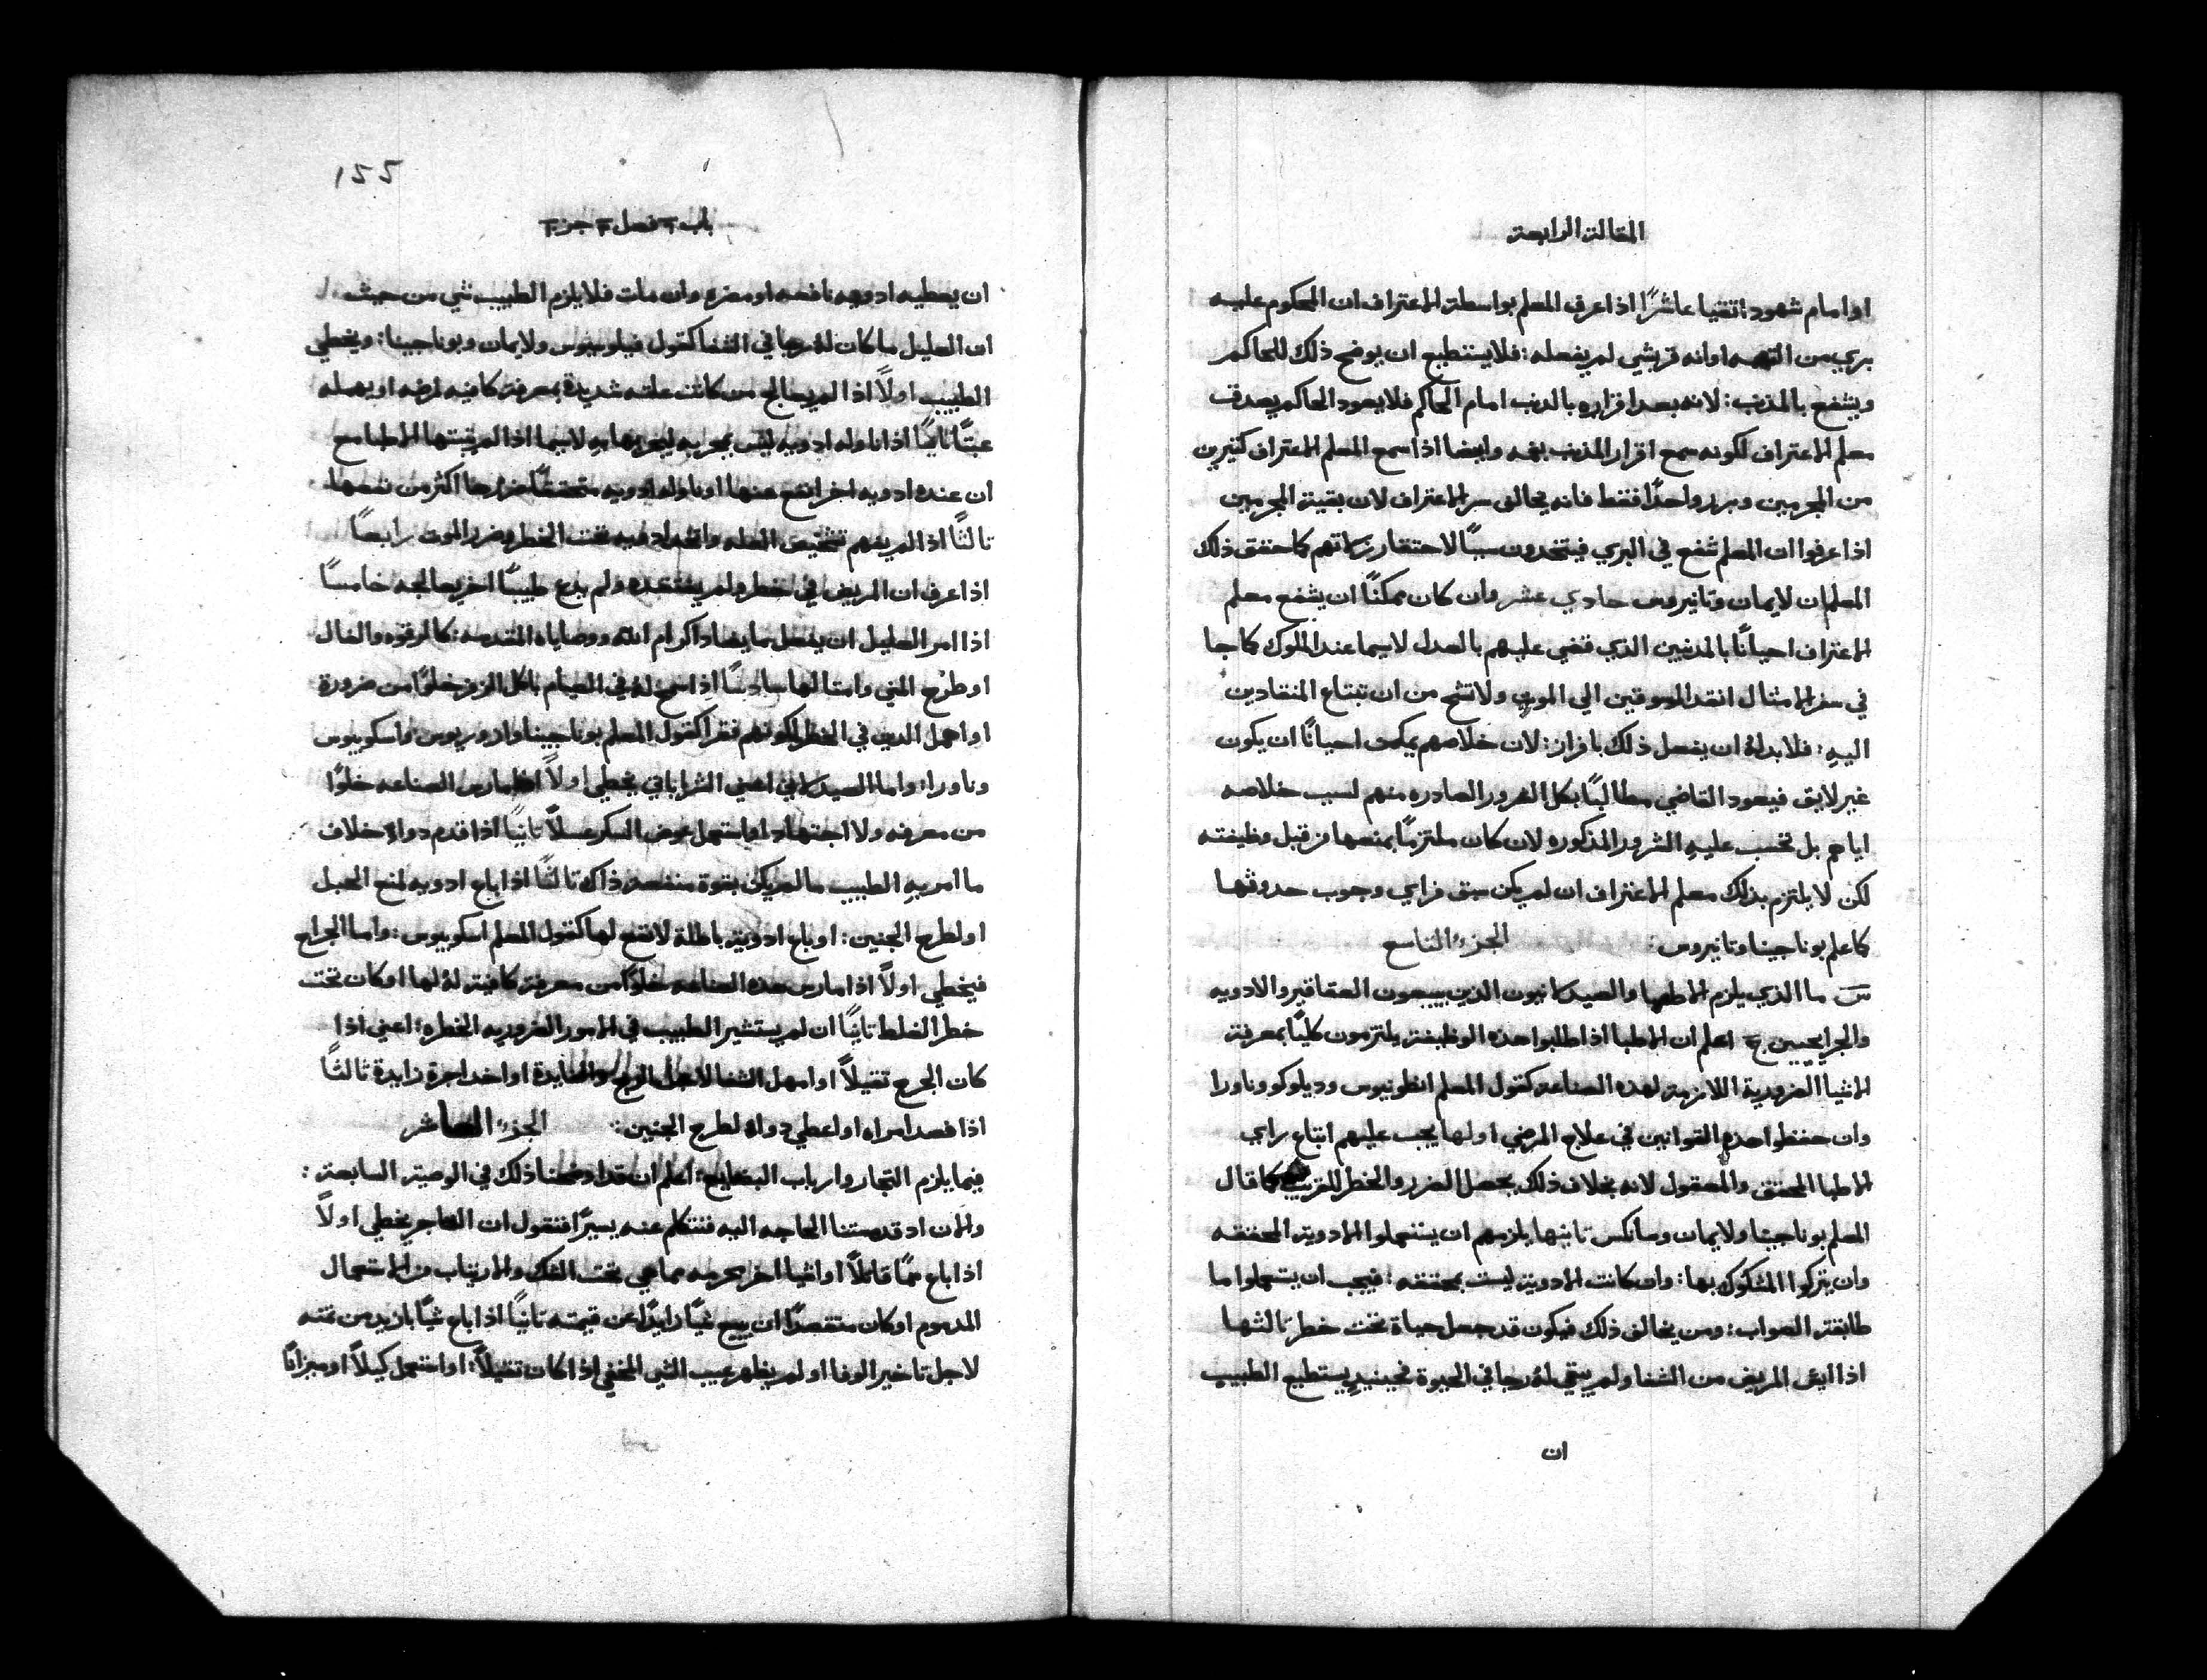 المقالة الرابعة
او امام شهود اتقيا عاشرًا اذا عرف المعلم بواسطة الاعتراف ان المحكوم عليه
بري من التهمه اوانه قر بشي لم يفعله: فلا يستطيع ان يوضح ذلك للحاكم
ويشفع بالمذنب: لانه بعد اقراره بالذنب امام الحاكم فلا يعود الحاكم يصدق
معلم الاعتراف لكونه سمع اقرار المذنب بفمه وايضا اذا سمع المعلم الاعتراف كثيرين
من المجرمين وبرر واحدًا فقط فانه يخالف سر الاعتراف لان بقية المجرمين
اذا عرفوا ان المعلم شفع في البري فيتخدون سببًا لاحتقار كما حقق ذلك
المعلمان لايمان وتانيروس حادي عشر وان كان ممكنًا ان يشفع معلم
الاعتراف احيانًا بالمدنبين الذي قضي عليهم بالعدل لاسيما عند الملوك كما جا
في سفر الامثال انقد المسوقين الي الموت ولا تشح من ان تبتاع المنقادين
اليه: فلا بد له ان يفعل ذلك بافراز: لان خلاصهم يمكن احيانًا ان يكون
غير لايق فيعود القاضي مطالبًا بكل الضرور الصادره منهم لسبب خلاصه
اياهم بل تحسب عليه الشرور المذكوره لان كان ملتزمًا بمنعها من قبل وظيفته
لكن لا يلتزم بذلك معلم الاعتراف ان لم يكن سبق فراي وجوب حدوثها
كما علم بوناجينا وتانيروس: الجزء التاسع
س ما الذي يلزم الاطبا والصيدلانيون الذين يبيعون العقاقير والادويه
والجرايحيين ج اعلم ان الاطبا اذا طلبوا هذه الوظيفة يلتزمون كليًا بمعرفة
الاشيا الضرورية اللازمة لهذه الصناعة كقول المعلم انطونيوس وديلوكو وناورا
وان حفظوا هذه القوانين في علاج المرضي اولها يجب عليهم اتباع راي
الاطبا المحقق والمعقول لانه بخلاف ذلك يحصل الضرر والخطر للقريب كما قال
المعلم بوناجينا ولايمان وسانكس تانيها يلزمهم ان يستعملوا الادوية المحققه
وان يتركوا المشكوك بها: وان كانت الادوية ليست بمحققه: فيجب ان يستعملوا ما
طابقة الصواب: ومن يخالف ذلك فيكون قد جعل حياة تحت خطر ثالثها
اذا ايس المريض من الشفا ولم يبقي له رجا في الحيوة فحينيدٍ يستطيع الطبيب
ان
155
باب فصل جز
ان يعطيه ادويه نافعه او مضره وان مات فلا يلزم الطبيب شي من حيث
ان العليل ما كان له رجا في الشفا كقول فيلوسيوس ولايمان وبوناجينا: ويخطي
الطبيب اولًا اذا لم يعالج من كانت علته شديدة بمعرفة كافيه لمرضه او بهمله
عبثًا تانيًا اذا ناوله ادويه ليس بمجربه ليجربها به لاسيما اذا لم يثبتها الاطبا مع
ان عنده ادويه اخر انفع منها او ناوله ادويه متحققًا ضررها اكثر من نفعها
تالثًا اذا لم يفهم تشخيص العله تحت الخطر وضرر الموت رابعًا
اذا عرف ان المريض في خطر ولم يفتقده ولم يدع طبيبًا اخر يعالجه خامسًا
اذا امر العليل ان يفعل بما يضاد اكرام الله ووصاياه المقدسه: كالرقوه والفال
او طرح المني وامثالها سادسًا اذا سمح له في الصيام باكل الزفر خلوًا من ضرورة
او اهمل الذين في الخطر لكونهم فقرا كقول المعلم بوناجينا وادوريوس واسكوبيوس
وناورا: واما الصيدلاني اعني الشراباتي يخطي اولًا اذا مارس الصناعه خلوًا
من معرفه ولا اجتهاد او استعمل عوض السكر عسلًا تانيًا اذا قدم دواء خلاف
ما امر به الطبيب ما لم يكن بقوة منفعة ذاك تالثًا اذا باع ادويه لمنع الحبل
او لطرح الجنين: او باع ادوية باطلة لا نفع لها كقول المعلم اسكوبيوس: واما الجراح
فيخطي اولًا اذا مارس هذه الصناعه خلوًا من معرفة كافية له لها او كان تحت
خطر الغلط تانيًا ان لم يستشير الطبيب في الامور الضروريه الخطره: اعني اذا
كان الجرح تقيلًا او امهل الشفا لاجل الربح والفايدة او اخد اجرة زايدة ثالثًا
اذا فصد امراه او اعطي دواء لطرح الجنين: الجزء العاشر
فيما يلزم التجار وارباب البضايع: اعلم ان قد اوضحنا ذلك في الوصية السابعة:
والان اد قد مستنا الحاجه اليه فنتكلم عنه يسيرًا فنقول ان التاجر يخطي اولًا
اذا باع سمًا قاتلًا او اشيا اخر محرمه مما هي تحت الشك والارتياب من الاستعمال
المدموم او كان متقصدًا ان يبيع شيًا زايدًا عن قيمته تانيًا اذا باع شيًا بازيد من تمنه
لاجل تاخير الوفا او لم يظهر عيب الشي المخفي اذا كان تقيلًا: او استعمل كيلًا او ميزانًا